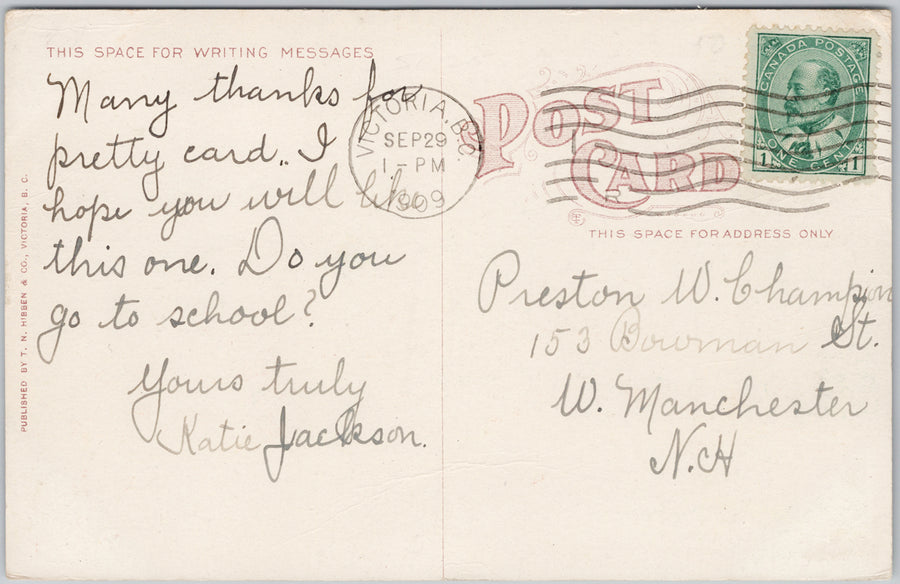 THIS SPACE FOR WRITING MESSAGES
Many thanks for
pretty card.. I
hope you will like
this one. Do you
go to school?
Yours truly
Katie Jackson.
PUBLISHED BY T. N. HIBBEN & CO., VICTORIA, B. C.
VICTORIA, B.C.
SEP 29
1 - PM
1909
POST
CARD
CANADA POSTAGE
1 ONE CENT 1
THIS SPACE FOR ADDRESS ONLY
Preston W. Champion
153 Bowman St.
W. Manchester
N.H